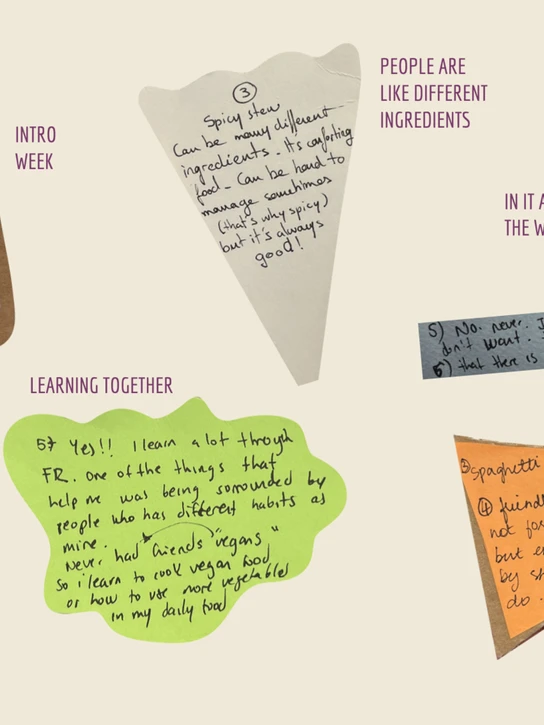 INTRO
WEEK
③
Spicy stew
Can be many different
ingredients. It's comforting
food - Can be hard to
manage sometimes
(that's why spicy)
but it's always
good!
PEOPLE ARE
LIKE DIFFERENT
INGREDIENTS
IN IT A
THE W
5) No. never. I
don't want.
6) that there is
LEARNING TOGETHER
5 Yes!! I learn a lot through
FR. One of the things that
help me was being sorrounded by
people who has different habits as
mine.
Never had friends "vegans"
so i learn to cook vegan food
or how to use more vegetables
in my daily food
③ spaghetti
④ friendl
not for
but e
by sh
do.